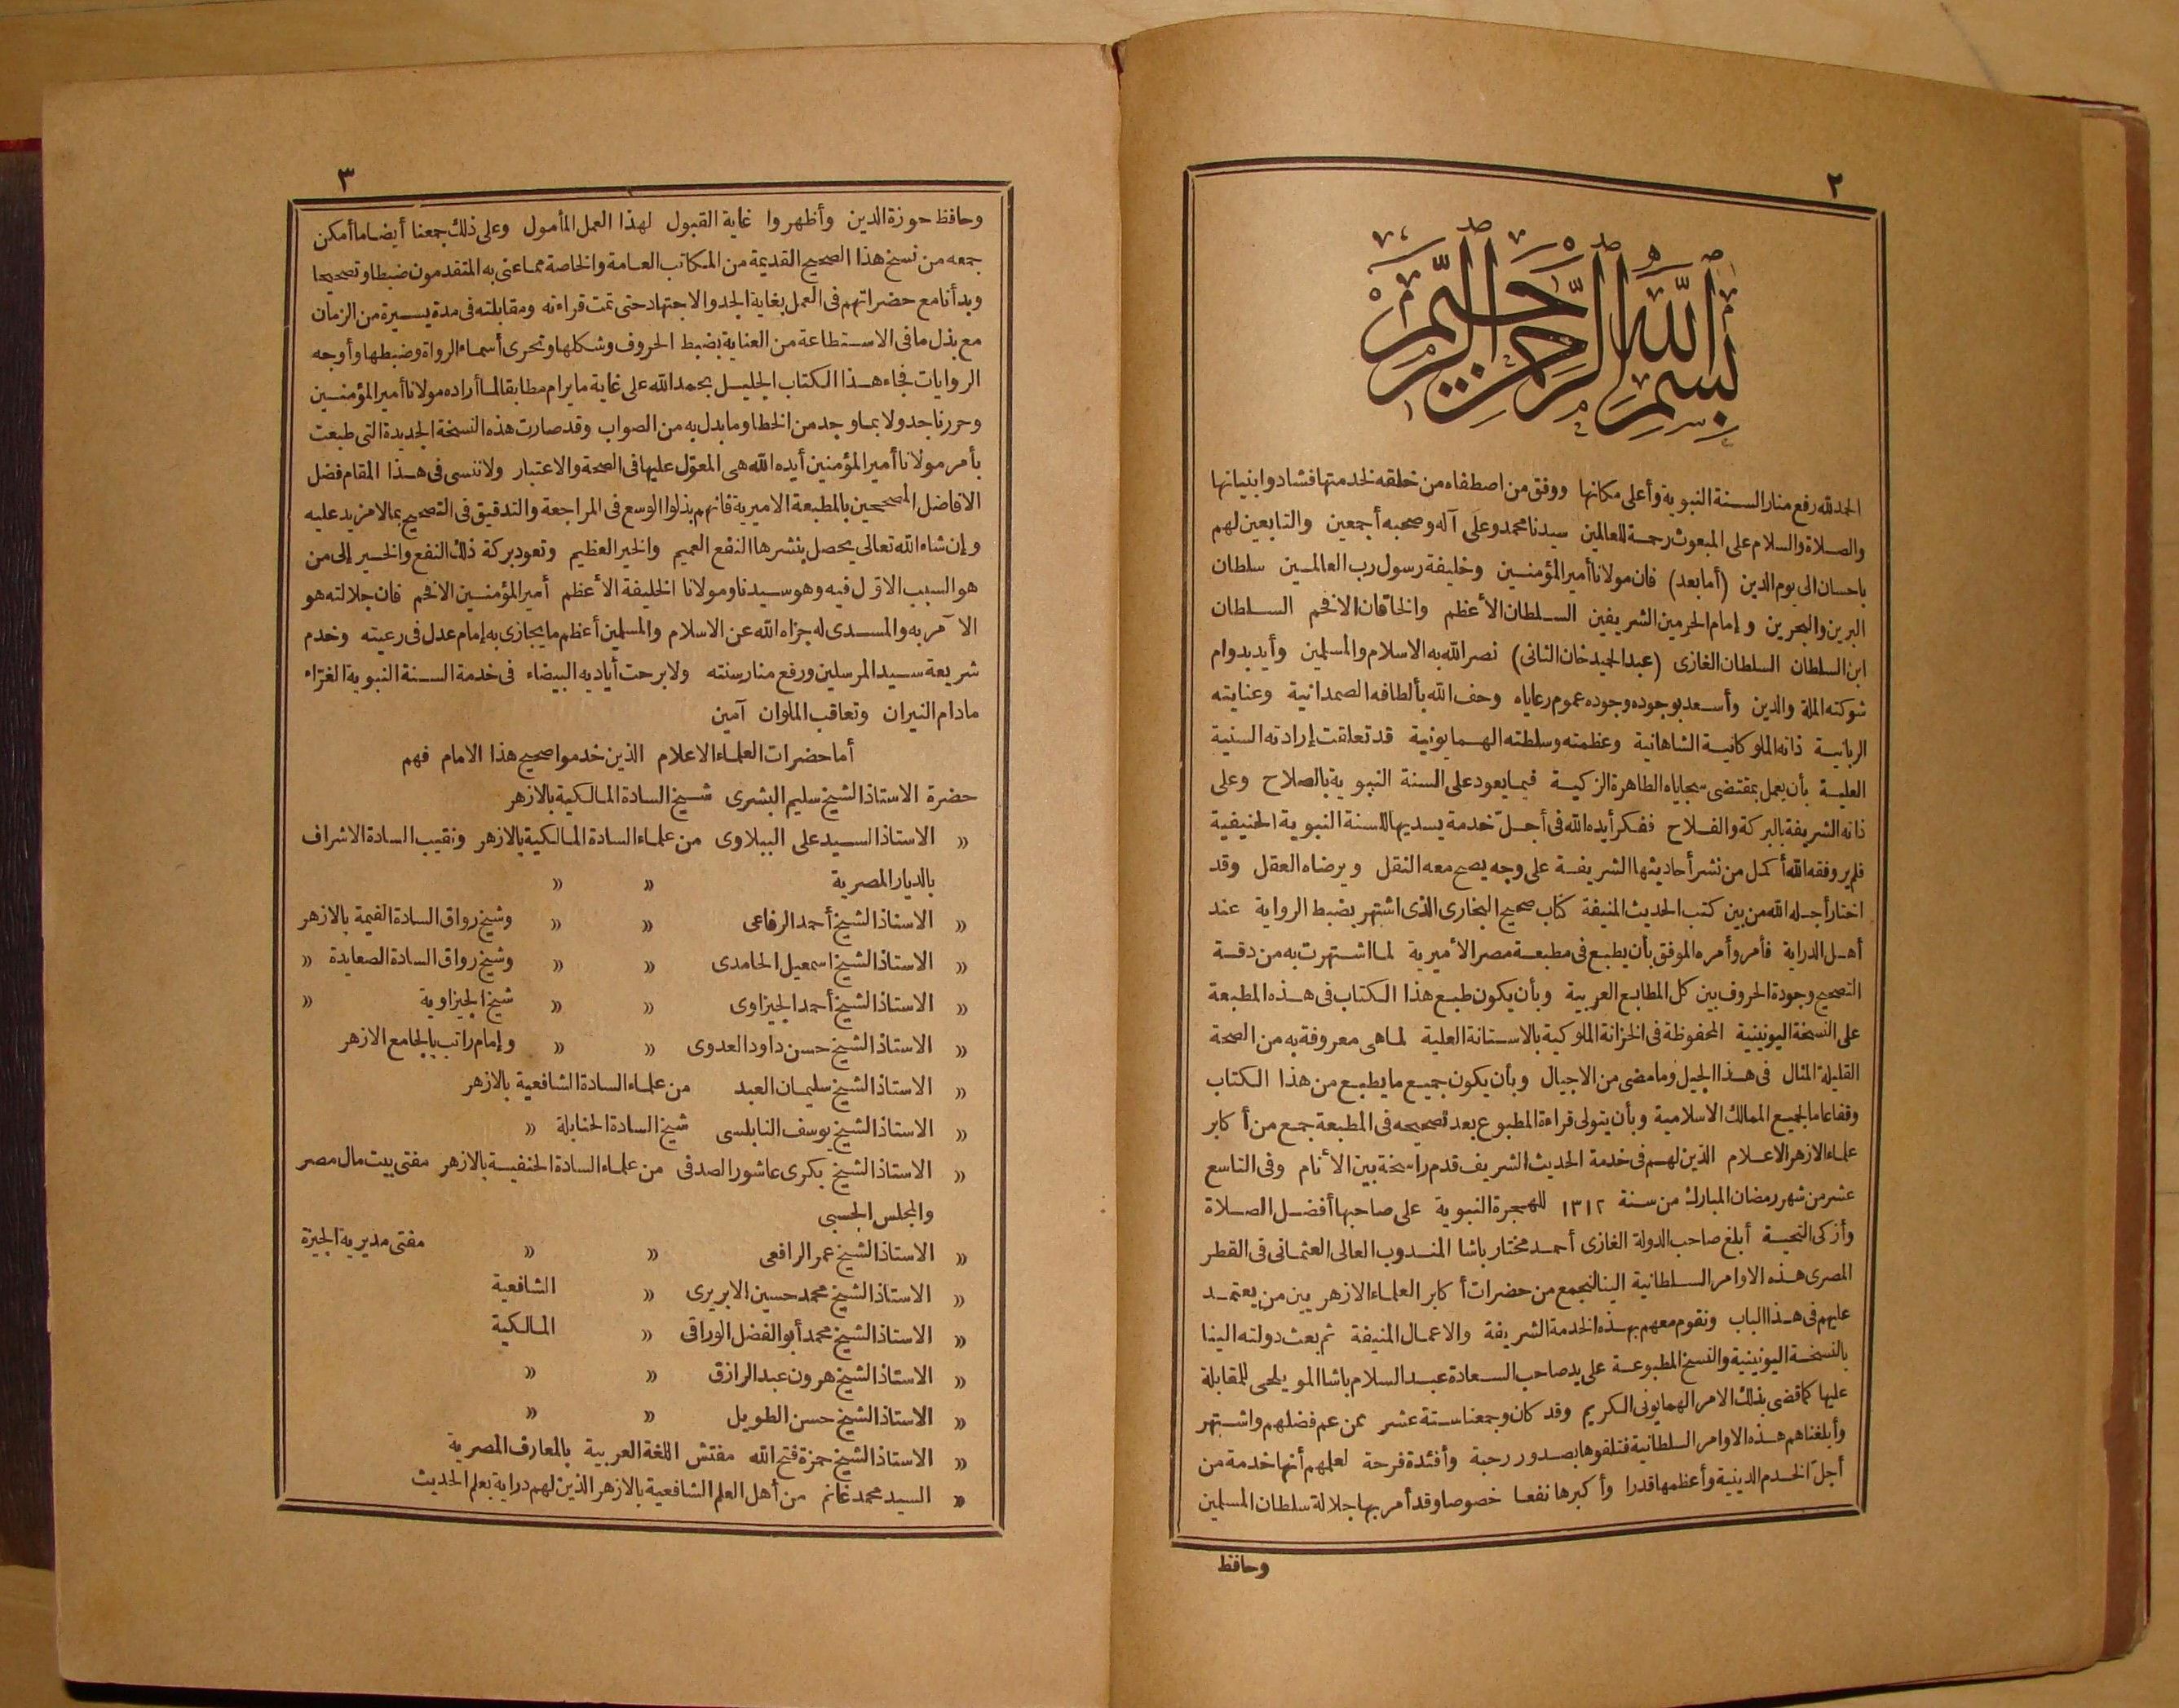 ٢
بسم الله الرحمن الرحيم
الحمد لله رفع منار السنة النبوية وأعلى مكانها ووفق من اصطفاه من خلقه لخدمتها فشادوا بنيانها
والصلاة والسلام على المبعوث رحمة للعالمين سيدنا محمد وعلى آله وصحبه أجمعين والتابعين لهم
باحسان الى يوم الدين (أما بعد) فان مولانا أمير المؤمنين وخليفة رسول رب العالمين سلطان
البرين والبحرين وإمام الحرمين الشريفين السلطان الأعظم والخاقان الافخم السلطان
ابن السلطان السلطان الغازى (عبد الحميد خان الثانى) نصر الله به الاسلام والمسلمين وأيد بدوام
شوكته الملة والدين وأسعد بوجوده وجوده عموم رعاياه وحف الله بألطافه الصمدانية وعنايته
الربانية ذاته الملوكانية الشاهانية وعظمته وسلطته الهمايونية قد تعلقت إرادته السنية
العلية بأن يعمل بمقتضى سجاياه الطاهرة الزكية فيما يعود على السنة النبوية بالصلاح وعلى
ذاته الشريفة بالبركة والفلاح ففكر أيده الله فى أجلّ خدمة يسديها للسنة النبوية الحنيفية
فلم ير وفقه الله أكمل من نشر أحاديثها الشريفة على وجه يصح معه النقل ويرضاه العقل وقد
اختار أجله الله من بين كتب الحديث المنيفة كتاب صحيح البخارى الذى اشتهر بضبط الرواية عند
أهل الدراية فأمر وأمره الموفق بأن يطبع فى مطبعة مصر الأميرية لما اشتهرت به من دقة
التصحيح وجودة الحروف بين كل المطابع العربية وبأن يكون طبع هذا الكتاب فى هذه المطبعة
على النسخة اليونينية المحفوظة فى الخزانة الملوكية بالاستانة العلية لما هى معروفة به من الصحة
القليلة المثال فى هذا الجيل وما مضى من الاجيال وبأن يكون جميع ما يطبع من هذا الكتاب
وقفا عاما لجميع الممالك الاسلامية وبأن يتولى قراءة المطبوع بعد تصحيحه فى المطبعة جمع من أكابر
علماء الازهر الاعلام الذين لهم فى خدمة الحديث الشريف قدم راسخة بين الأنام وفى التاسع
عشر من شهر رمضان المبارك من سنة ١٣١٢ للهجرة النبوية على صاحبها أفضل الصلاة
وأزكى التحية أبلغ صاحب الدولة الغازى أحمد مختار باشا المندوب العالى العثمانى فى القطر
المصرى هذه الاوامر السلطانية الينا لنجمع من حضرات أكابر العلماء الازهريين من يعتمد
عليهم فى هذا الباب ونقوم معهم بهذه الخدمة الشريفة والاعمال المنيفة ثم بعث دولته الينا
بالنسخة اليونينية والنسخ المطبوعة على يد صاحب السعادة عبد السلام باشا المويلحى للمقابلة
عليها كما قضى بذلك الامر الهمايونى الكريم وقد كان وجمعنا ستة عشر ممن عم فضلهم واشتهر
وأبلغناهم هذه الاوامر السلطانية فتلقوها بصدور رحبة وأفئدة فرحة لعلمهم أنها خدمة من
أجلّ الخدم الدينية وأعظمها قدرا وأكبرها نفعا خصوصا وقد أمر بها جلالة سلطان المسلمين
وحافظ
٣
وحافظ حوزة الدين وأظهروا غاية القبول لهذا العمل المأمول وعلى ذلك جمعنا أيضا ما أمكن
جمعه من نسخ هذا الصحيح القديمة من المكاتب العامة والخاصة مما عنى به المتقدمون ضبطا وتصحيحا
وبدأنا مع حضراتهم فى العمل بغاية الجد والاجتهاد حتى تمت قراءته ومقابلته فى مدة يسيرة من الزمان
مع بذل ما فى الاستطاعة من العناية بضبط الحروف وشكلها وتحرى أسماء الرواة وضبطها وأوجه
الروايات فجاء هذا الكتاب الجليل بحمد الله على غاية ما يرام مطابقا لما أراده مولانا أمير المؤمنين
وحررنا جدولا بما وجد من الخطا وما بدل به من الصواب وقد صارت هذه النسخة الجديدة التى طبعت
بأمر مولانا أمير المؤمنين أيده الله هى المعوّل عليها فى الصحة والاعتبار ولا ننسى فى هذا المقام فضل
الافاضل المصححين بالمطبعة الاميرية فانهم بذلوا الوسع فى المراجعة والتدقيق فى التصحيح بما لا مزيد عليه
وإن شاء الله تعالى يحصل بنشرها النفع العميم والخير العظيم وتعود بركة ذلك النفع والخير إلى من
هو السبب الاوّل فيه وهو سيدنا ومولانا الخليفة الأعظم أمير المؤمنين الافخم فان جلالته هو
الآمر به والمسدى له جزاه الله عن الاسلام والمسلمين أعظم ما يجازى به إمام عدل فى رعيته وخدم
شريعة سيد المرسلين ورفع منار سنته ولا برحت أياديه البيضاء فى خدمة السنة النبوية الغرّاء
مادام النيران وتعاقب الملوان آمين
أما حضرات العلماء الاعلام الذين خدموا صحيح هذا الامام فهم
حضرة الاستاذ الشيخ سليم البشرى شيخ السادة المالكية بالازهر
« الاستاذ السيد على الببلاوى من علماء السادة المالكية بالازهر ونقيب السادة الاشراف
بالديار المصرية « «
« الاستاذ الشيخ أحمد الرفاعى « « وشيخ رواق السادة الفيمة بالازهر
« الاستاذ الشيخ اسمعيل الحامدى « « وشيخ رواق السادة الصعايدة «
« الاستاذ الشيخ أحمد الجيزاوى « « شيخ الجيزاوية «
« الاستاذ الشيخ حسن داود العدوى « « وإمام راتب بالجامع الازهر
« الاستاذ الشيخ سليمان العبد من علماء السادة الشافعية بالازهر
« الاستاذ الشيخ يوسف النابلسى شيخ السادة الحنابلة «
« الاستاذ الشيخ بكرى عاشور الصدفى من علماء السادة الحنفية بالازهر مفتى بيت مال مصر
والمجلس الحسبى
« الاستاذ الشيخ عمر الرافعى « « مفتى مديرية الجيزة
« الاستاذ الشيخ محمد حسين الابريرى « الشافعية
« الاستاذ الشيخ محمد أبو الفضل الوراقى « المالكية
« الاستاذ الشيخ هرون عبد الرازق « «
« الاستاذ الشيخ حسن الطويل « «
« الاستاذ الشيخ حمزة فتح الله مفتش اللغة العربية بالمعارف المصرية
« السيد محمد غانم من أهل العلم الشافعية بالازهر الذين لهم دراية بعلم الحديث